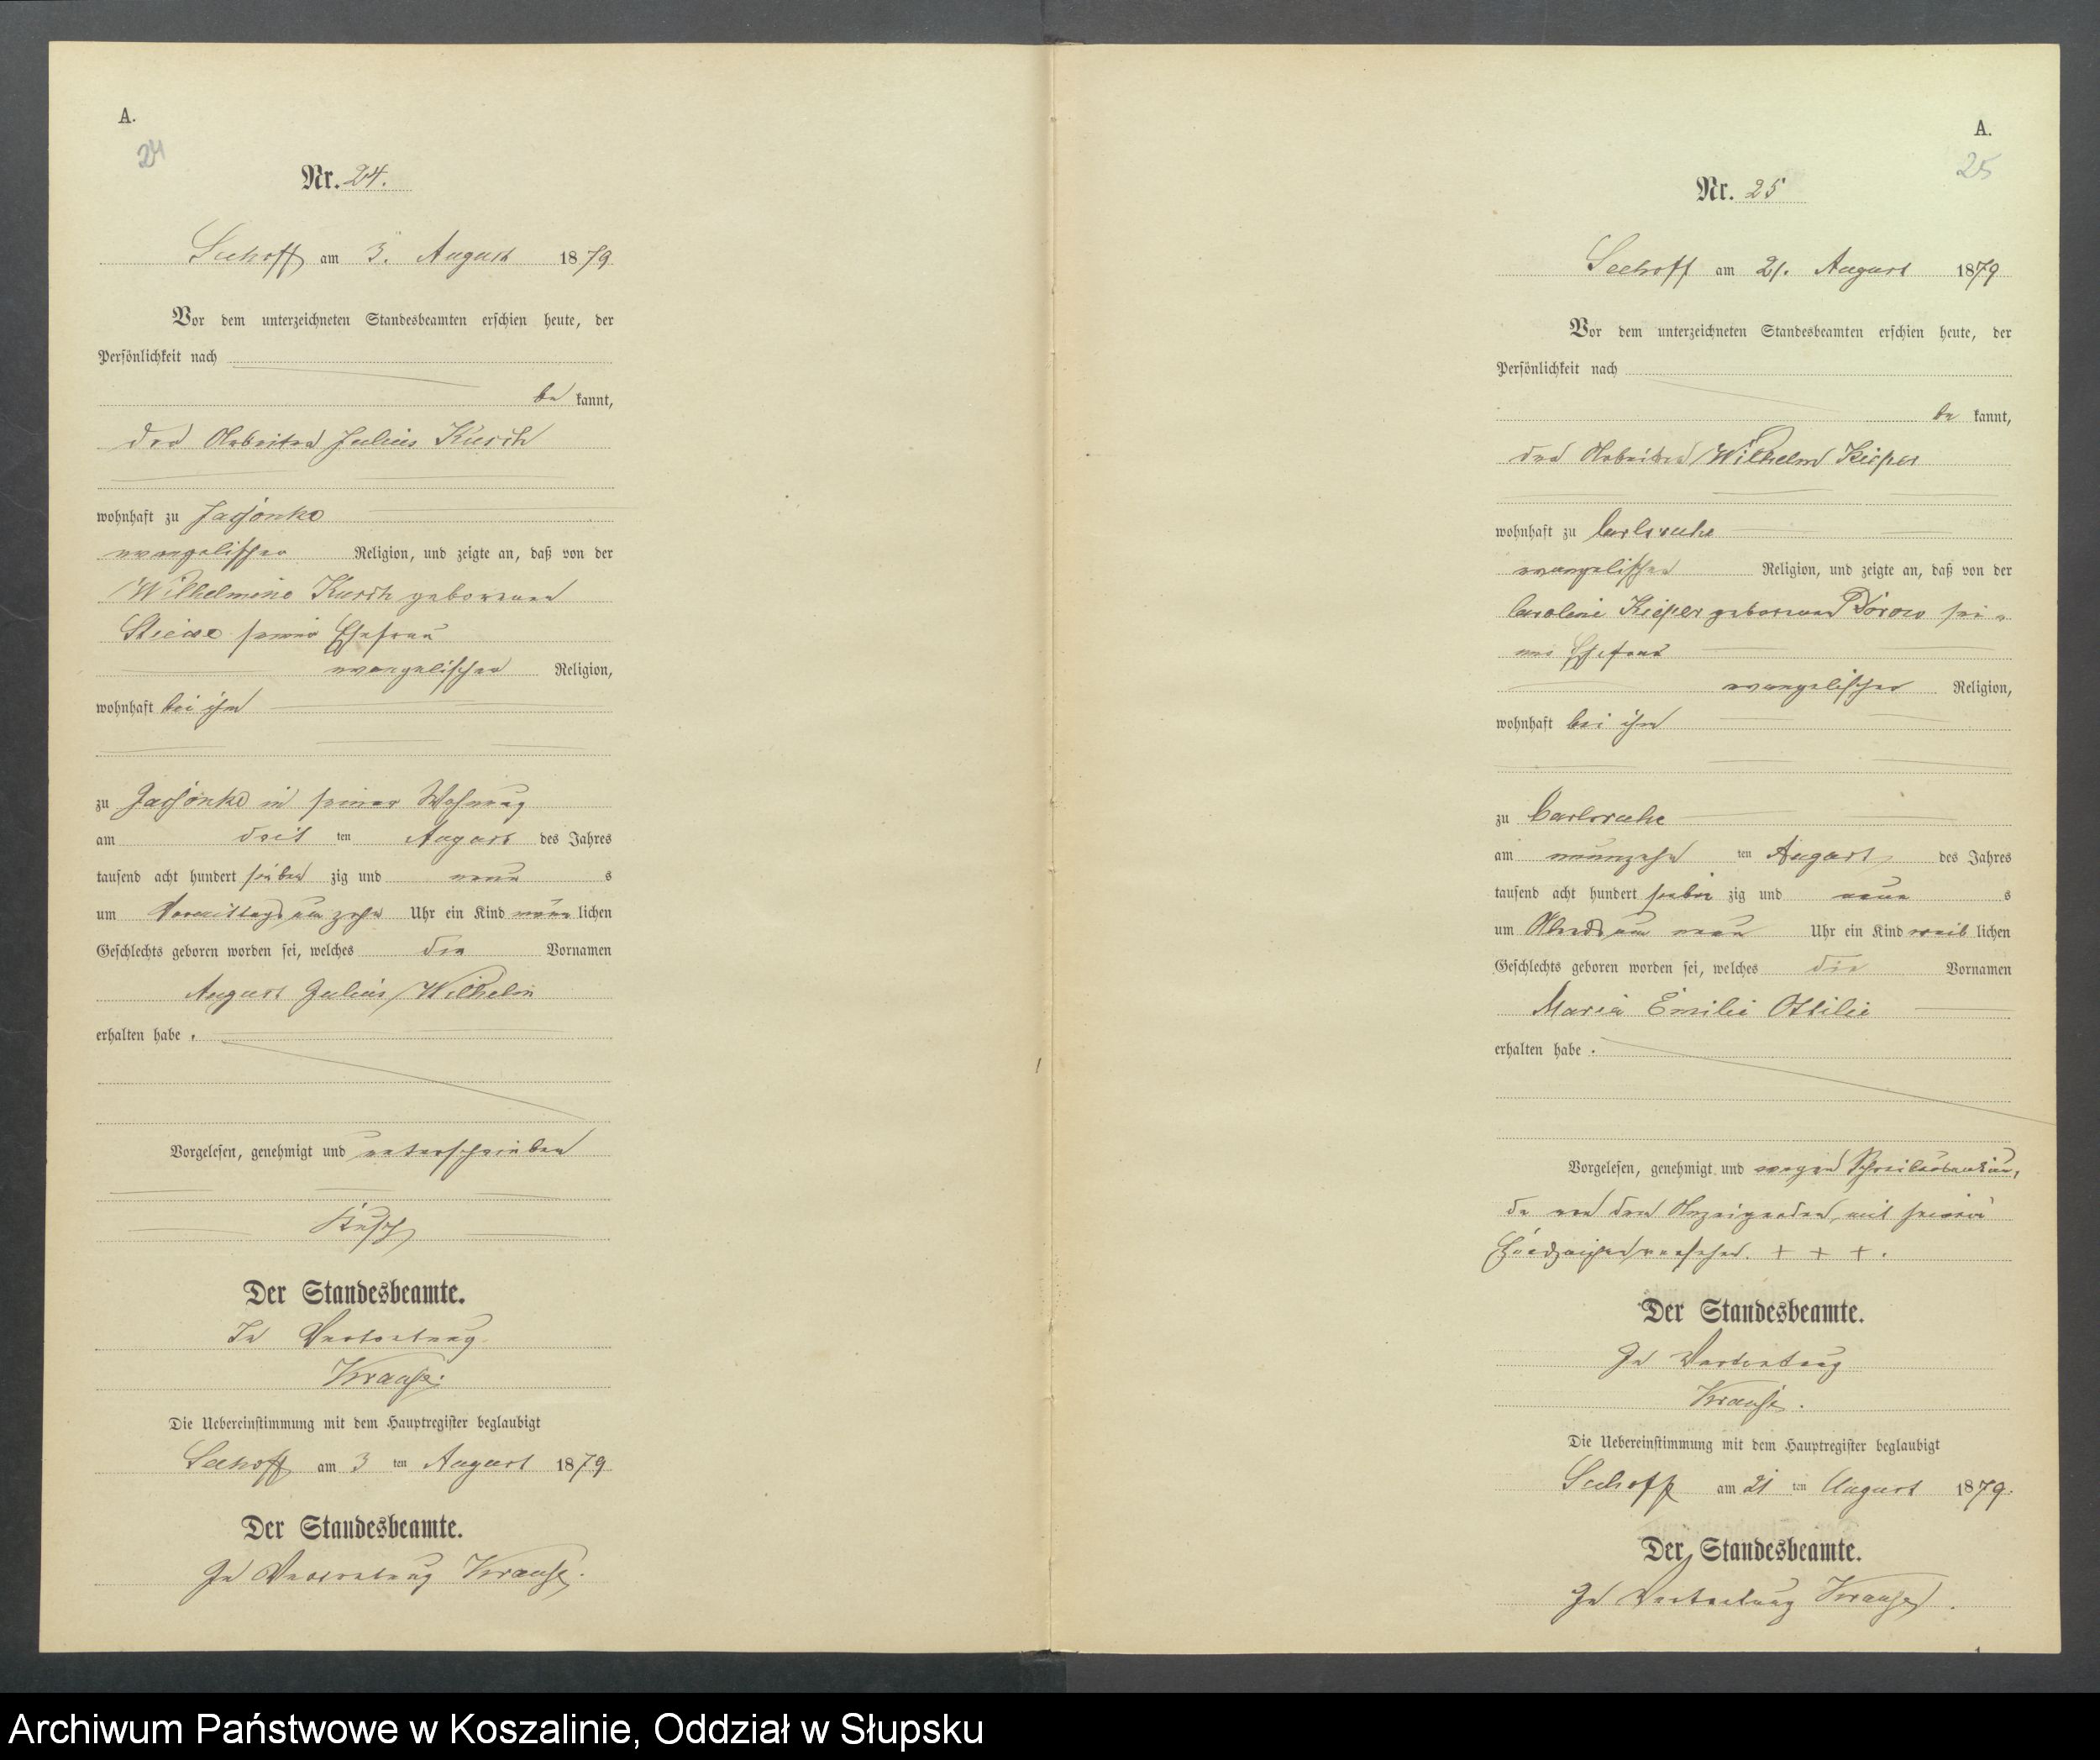 A.
24
Nr. 24.
Seehoff am 3. August 1879
Vor dem unterzeichneten Standesbeamten erschien heute, der
Persönlichkeit nach
be kannt,
der Arbeiter Julius Kusch
wohnhaft zu Jassonke
evangelischer Religion, und zeigte an, daß von der
Wilhelmine Kusch geborenen
seiner Ehefrau
evangelischer Religion,
wohnhaft bei ihm
zu Jassonke in seiner Wohnung
am drit ten August des Jahres
tausend acht hundert sieben zig und neun s
um Vormittags um zehn Uhr ein Kind männ lichen
Geschlechts geboren worden sei, welches die Vornamen
August Julius Wilhelm
erhalten habe.
Vorgelesen, genehmigt und unterschrieben
Kusch
Der Standesbeamte.
In Vertretung
Krause.
Die Uebereinstimmung mit dem Hauptregister beglaubigt
Seehoff am 3 ten August 1879
Der Standesbeamte.
In Vertretung Krause.
A.
25
Nr. 25
Seehoff am 21. August 1879
Vor dem unterzeichneten Standesbeamten erschien heute, der
Persönlichkeit nach
be kannt,
der Arbeiter Wilhelm Kieper
wohnhaft zu Carlsruhe
evangelischer Religion, und zeigte an, daß von der
Caroline Kieper geborenen sei-
ner Ehefrau
evangelischer Religion,
wohnhaft bei ihm
zu Carlsruhe
am neunzehn ten August des Jahres
tausend acht hundert sieben zig und neun s
um Abends um neun Uhr ein Kind weib lichen
Geschlechts geboren worden sei, welches die Vornamen
Marie Emilie Ottilie
erhalten habe.
Vorgelesen, genehmigt und wegen Schreibensunkun-
de von dem Anzeigenden, mit seinem
Handzeichen versehen. + + +.
Der Standesbeamte.
In Vertretung
Krause.
Die Uebereinstimmung mit dem Hauptregister beglaubigt
Seehoff am 21 ten August 1879.
Der Standesbeamte.
In Vertretung Krause.
Archiwum Państwowe w Koszalinie, Oddział w Słupsku